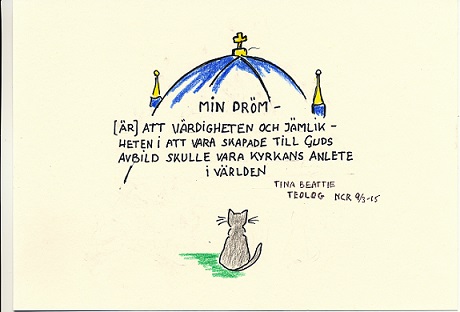 MIN DRÖM –
[ÄR] ATT VÄRDIGHETEN OCH JÄMLIK –
HETEN I ATT VARA SKAPADE TILL GUDS
AVBILD SKULLE VARA KYRKANS ANLETE
I VÄRLDEN
TINA BEATTIE
TEOLOG NCR 9/3-15